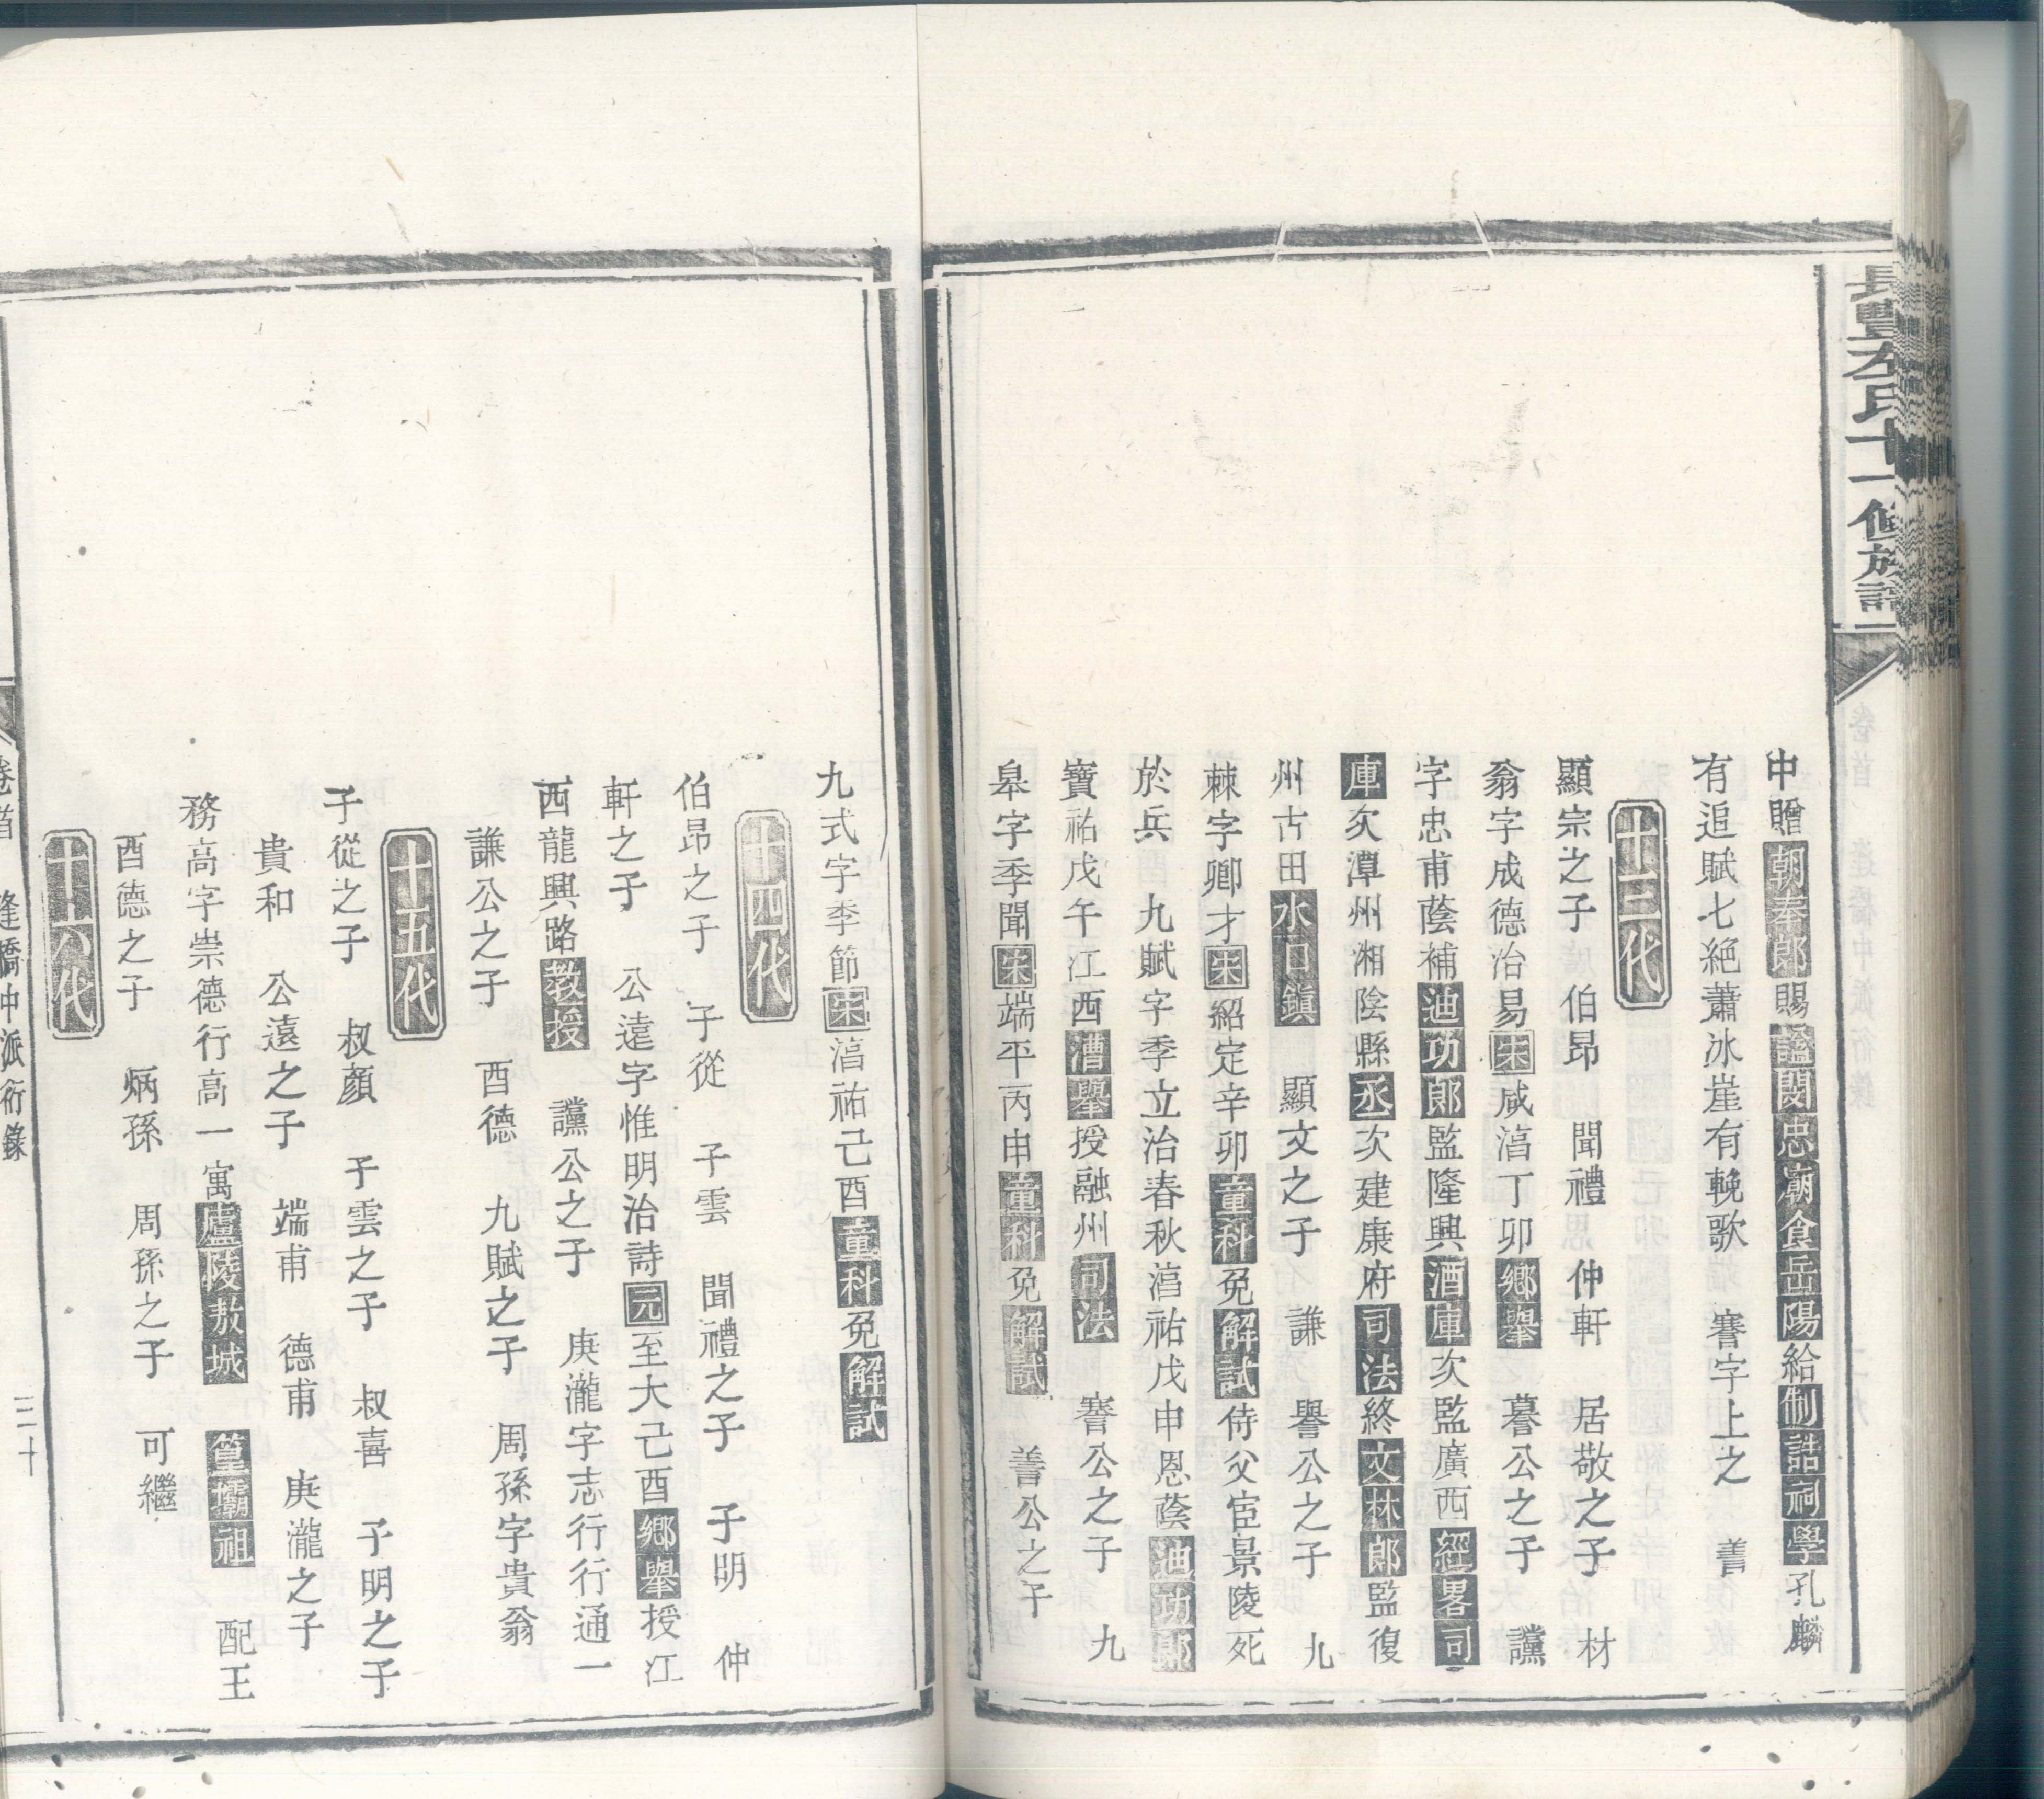 長豐左氏十一修族譜
中贈朝奉郎賜諡閔忠廟食岳陽給制誥祠學孔麟
有追賦七絕蕭冰崖有輓歌　謇字上之　善
十三代
顯宗之子　伯昂　聞禮　仲軒　居敬之子　材
翁字成德治易宋咸淳丁卯鄉舉　謩公之子　讜
字忠甫蔭補迪功郎監隆興酒庫次監廣西經畧司
庫次潭州湘陰縣丞次建康府司法終文林郎監復
州古田水口鎮　顯文之子　謙　譽公之子　九
棘字卿才宋紹定辛卯童科免解試侍父宦景陵死
於兵　九賦字季立治春秋淳祐戊申恩蔭迪功郎
寶祐戊午江西漕舉授融州司法　謇公之子　九
皋字季聞宋端平丙申童科免解試　善公之子
九式字季節宋淳祐己酉童科免解試
十四代
伯昂之子　子從　子雲　聞禮之子　子明　仲
軒之子　公遠字惟明治詩元至大己酉鄉舉授江
西龍興路教授　讜公之子　庚瀧字志行行通一
謙公之子　酉德　九賦之子　周孫字貴翁
十五代
子從之子　叔顏　子雲之子　叔喜　子明之子
貴和　公遠之子　端甫　德甫　庚瀧之子
務高字崇德行高一寓廬陵敖城　篁壩祖　配王
酉德之子　炳孫　周孫之子　可繼
十六代
卷首　逢橋中派衍錄　三十